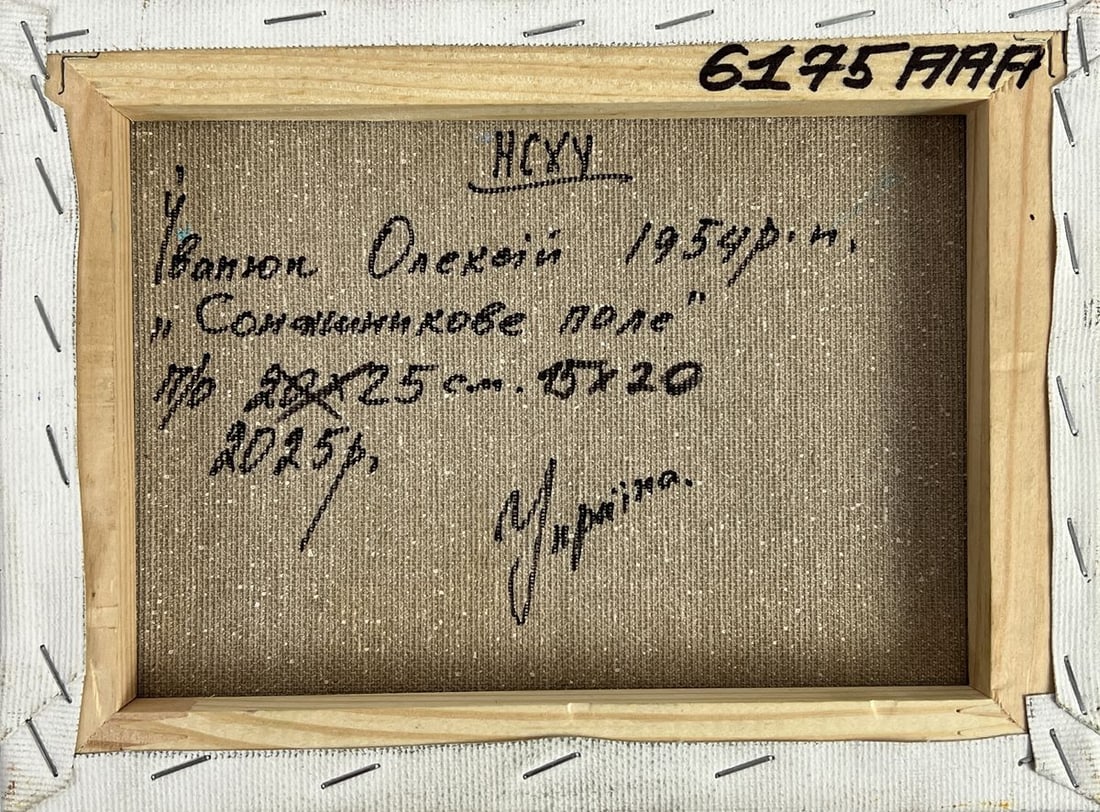 6175AAA
НСХУ
Іванюк Олексій 1954р.н.
„Соняшникове поле"
п/о 20x25 см. 15x20
2025р.
Україна.